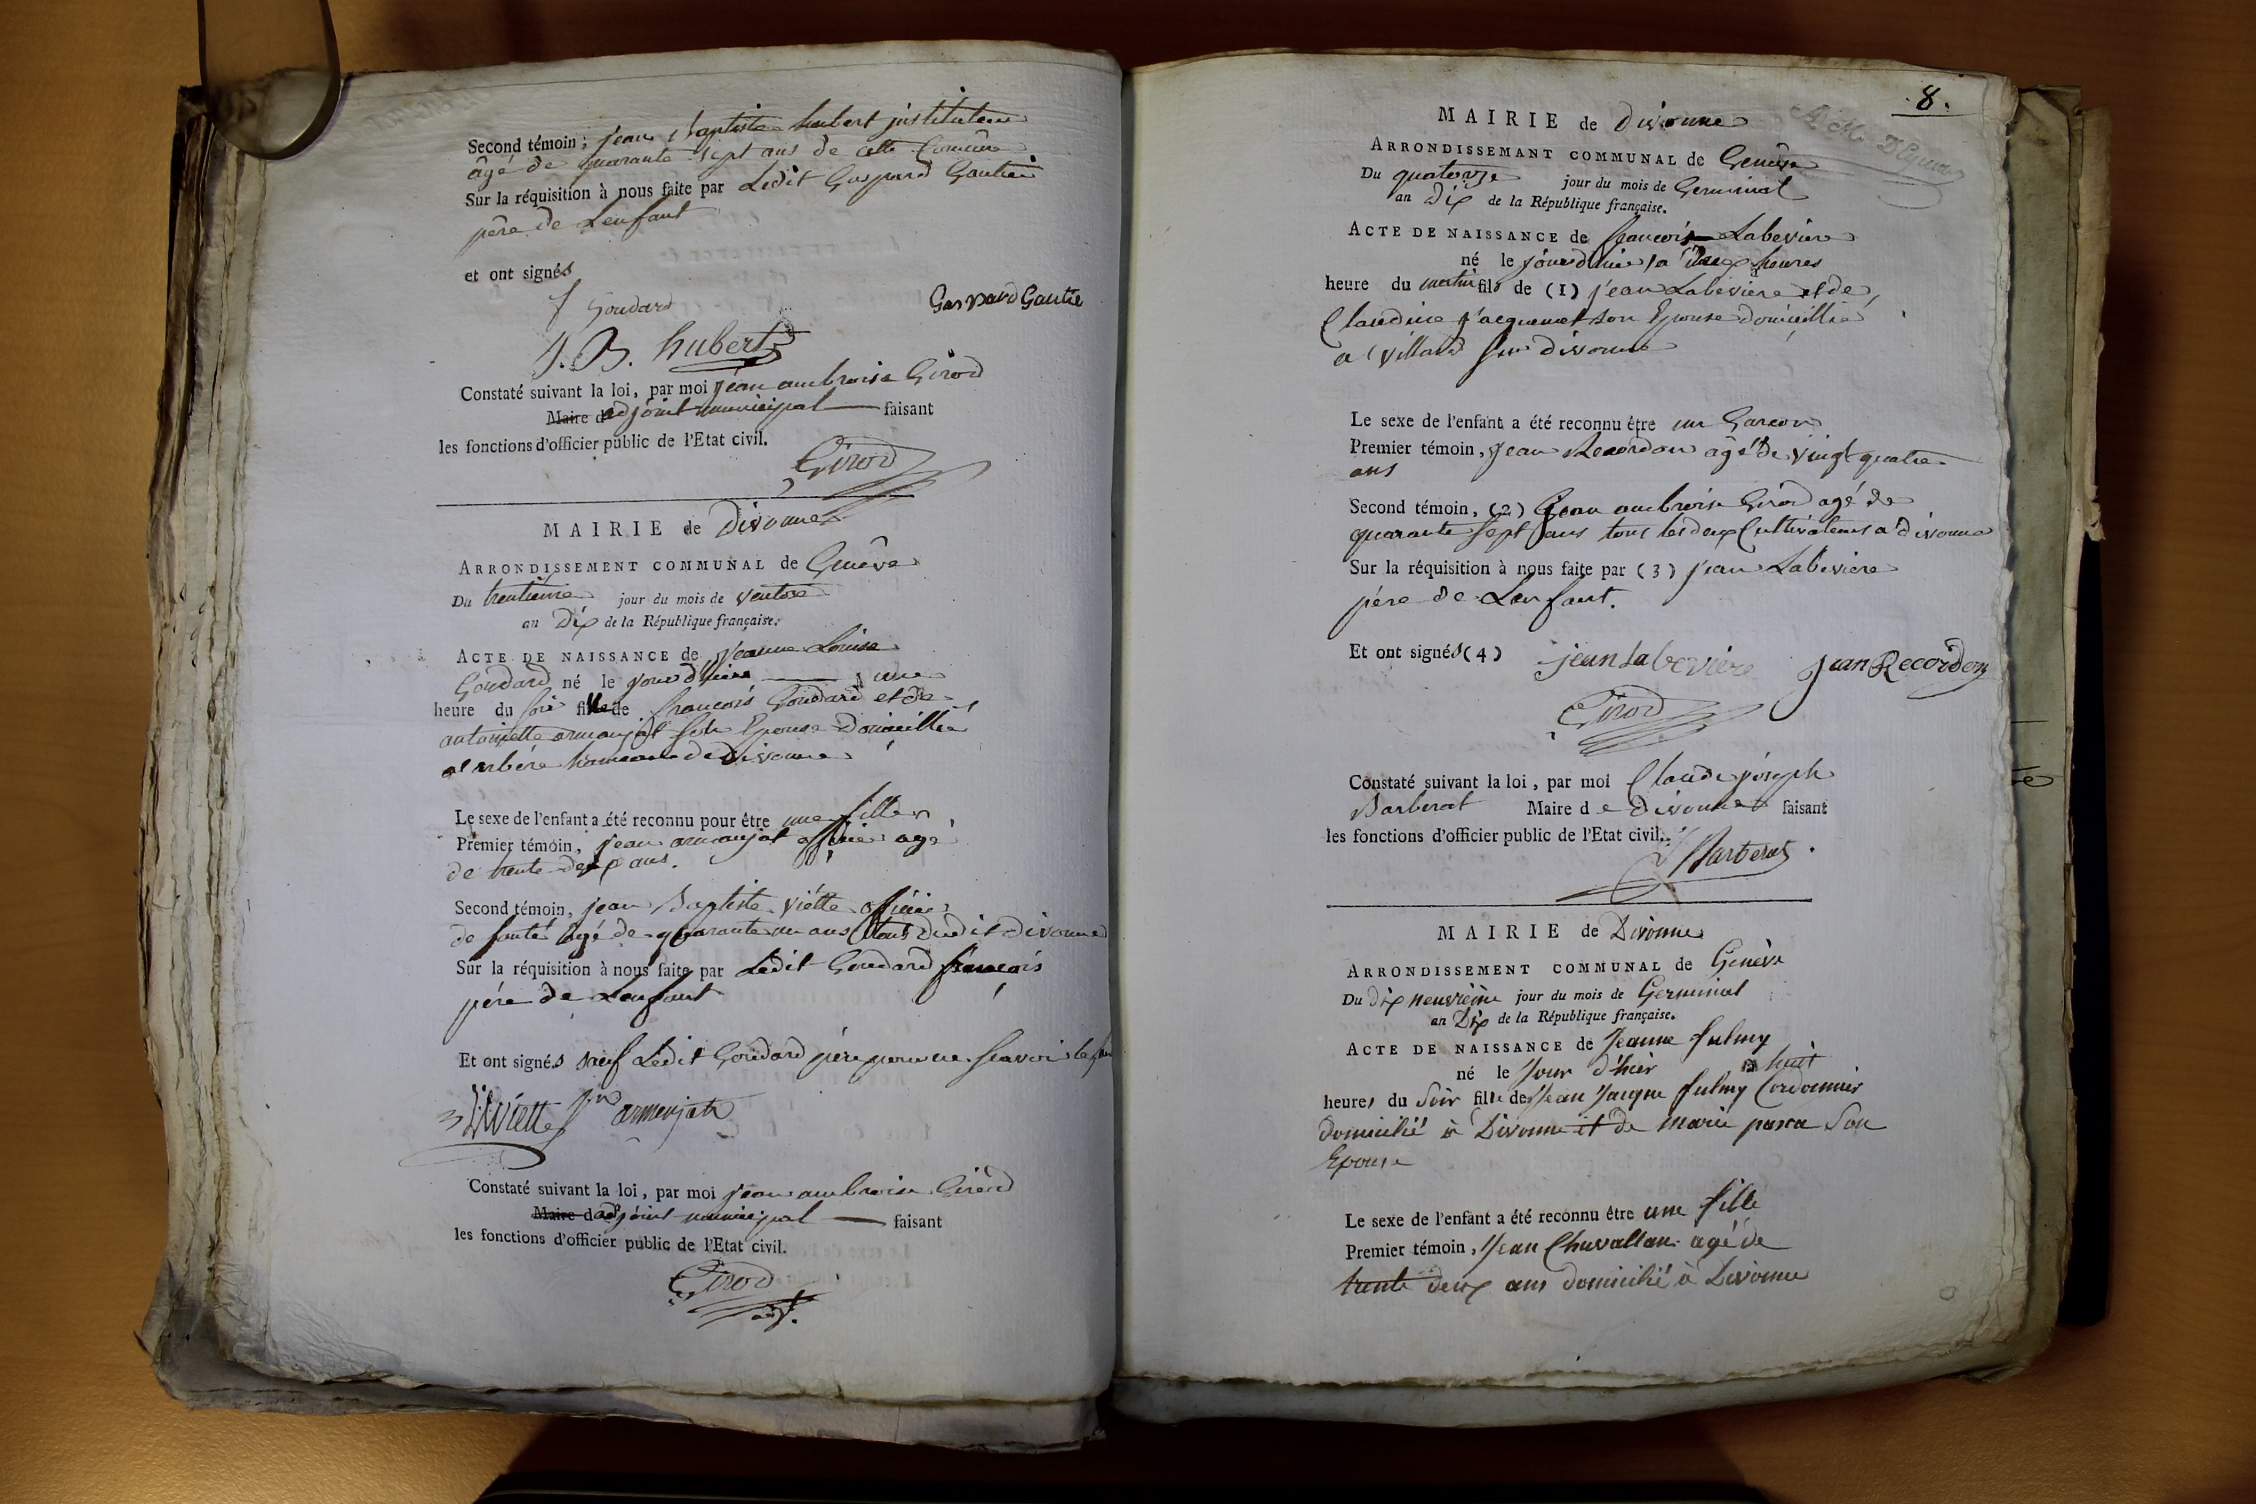 Second témoin; jean Baptiste hubert instituteur
âgé de quarante sept ans de cette Comune
Sur la réquisition à nous faite par Ledit Gaspard Gautier
père de Lenfant
et ont signés
f Goudard
Gaspard Gautie
J. B. hubert
Constaté suivant la loi, par moi jean ambroise Girod
Maire d adjoint municipal faisant
les fonctions d'officier public de l'Etat civil.
Girod
MAIRIE de Divonne
ARRONDISSEMENT COMMUNAL de Genêve
Du trentieme jour du mois de ventose
an Dix de la République française.
ACTE DE NAISSANCE de jeanne Louise
Goudard né le jourd'hier a une
heure du soir fille de francois Goudard et de
antoinette armanjat son Epouse Domicillié
a arbére hameau de Divonne
Le sexe de l'enfant a été reconnu pour être une fille
Premier témoin, jean armanjat agé
de trente deux ans.
Second témoin, jean Baptiste viétte officier
de santé agé de quarante un ans tous dudit divonne
Sur la réquisition à nous faite par Ledit Goudard francois
père de Lenfant
Et ont signés sauf Ledit Goudard père pour ne scavoir le
Viette jn armanjat
Constaté suivant la loi, par moi jean ambroise Girod
Maire d adjoint municipal faisant
les fonctions d'officier public de l'Etat civil.
Girod
adj.
8.
MAIRIE de Divonne
ARRONDISSEMANT COMMUNAL de Genêve
Du quatorze jour du mois de Germinal
an Dix de la République française.
ACTE DE NAISSANCE de francois Labeviere
né le jourdhuier a heures
heure du matin fils de (1) jean Labeviere et de
Claudine jacquemet son Epouse domicillié
a villard sur divonne
Le sexe de l'enfant a été reconnu être un Garcon
Premier témoin, jean Recordon agé de vingt quatre
ans
Second témoin, (2) jean ambroise Girod agé de
quarante sept ans tous les deux Cultivateurs a divonne
Sur la réquisition à nous faite par (3) jean Labeviere
père de Lenfant.
Et ont signés (4) jean labeviere jean Recordon
Girod
Constaté suivant la loi, par moi Claude joseph
Barberat Maire d e divonne faisant
les fonctions d'officier public de l'Etat civil.
Barberat
MAIRIE de Divonne
ARRONDISSEMENT COMMUNAL de Genève
Du dix neuvième jour du mois de Germinal
an Dix de la République française.
ACTE DE NAISSANCE de Jeanne fulmy
né le jour d'hier a huit
heures du Soir fille de Jean Jacque fulmy Cordonnier
domicilié à Divonne et de marie pasca Son
Epouse
Le sexe de l'enfant a été reconnu être une fille
Premier témoin, Jean Chavallan agé de
trente deux ans domicilié à Divonne